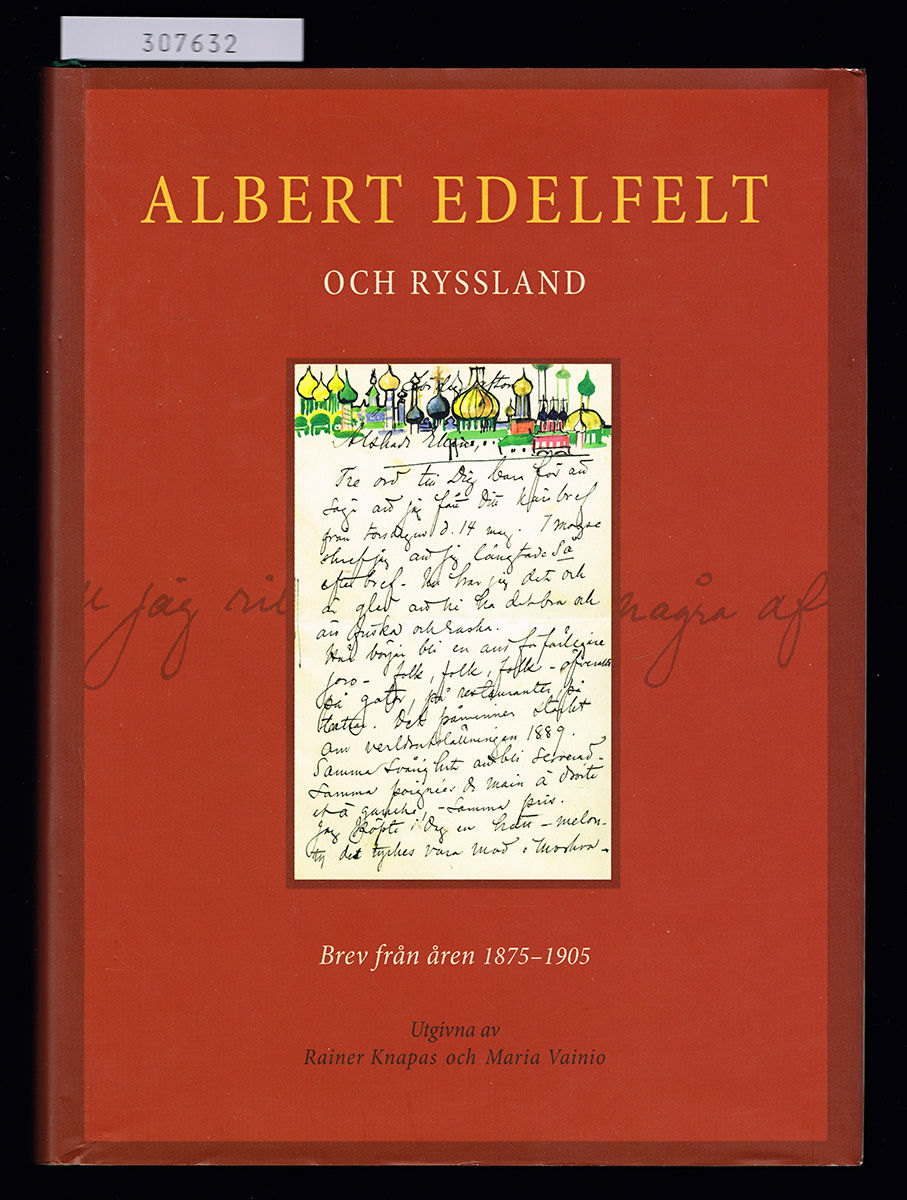 307632
ALBERT EDELFELT
OCH RYSSLAND
Lördag afton
Älskade Elan,
Tre ord till Dig bara för att
säga att jag fått Ditt kära bref
från torsdagen d. 14 maj. I morse
skref jag att jag längtade så
efter bref. Nu har jag det och
är glad att ni ha det bra och
äro friska och raska.
Här börjar bli en
folk, folk, folk
på gator, på restauranter, på
Det påminner starkt
om verldsutställningen 1889.
Samma svårighet att bli serverad
Samma poignées de main à droite
et à gauche, - Samma pris.
Jag köpte i Dig en hatt - melon
ty det tyckes vara mod i Moskva -
u jag ri
några af
Brev från åren 1875–1905
Utgivna av
Rainer Knapas och Maria Vainio